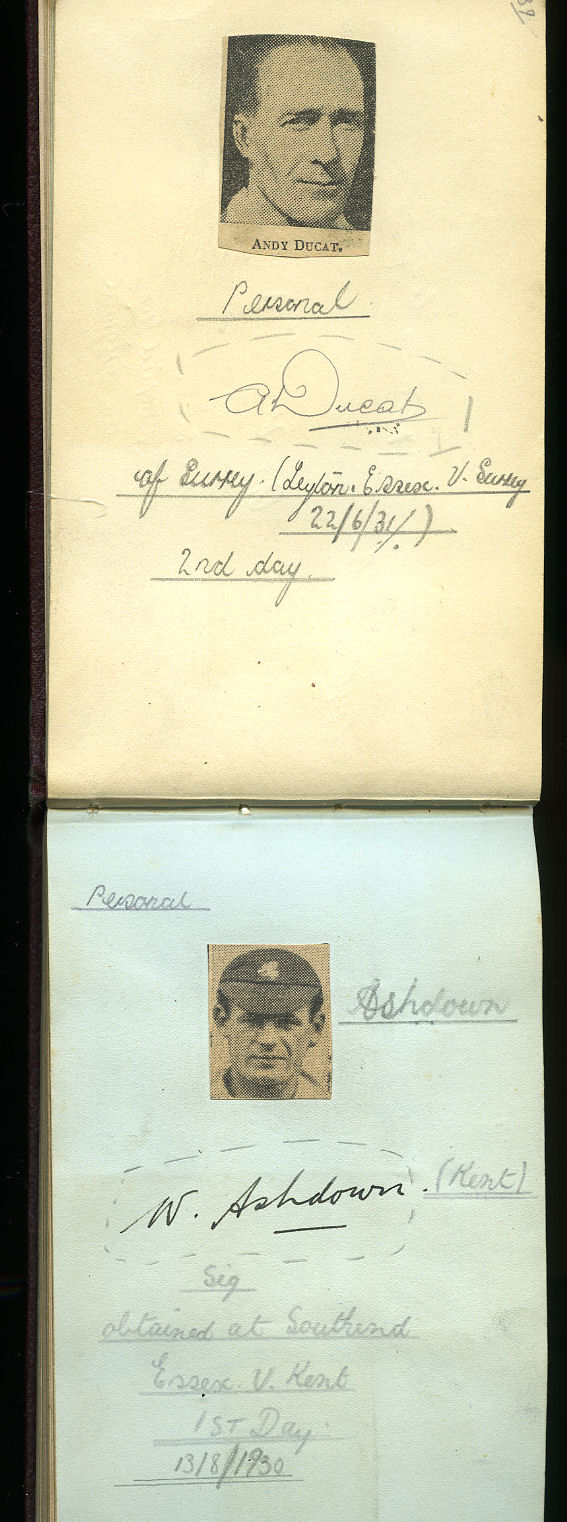 39
ANDY DUCAT.
Personal
A Ducat
of Surrey. (Leyton. Essex. V. Surrey
22/6/31/.)
2nd day.
Personal
Ashdown
W. Ashdown.
(Kent)
Sig
obtained at Southend
Essex. V. Kent
1ST Day.
13/8/1930